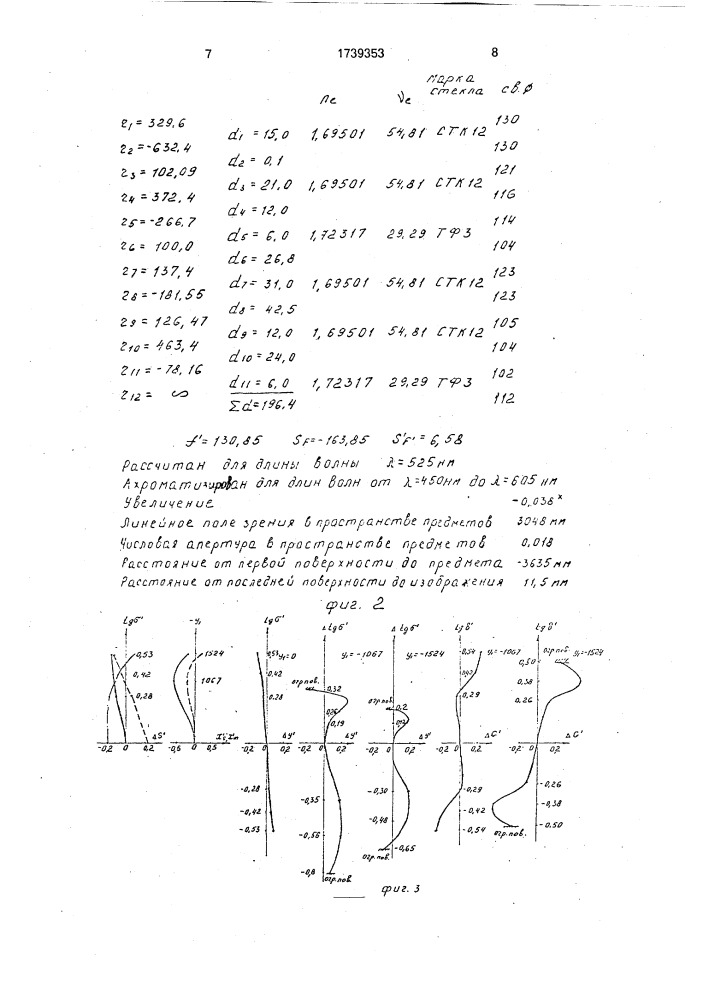 7 1739353 8
nе νе марка стекла св.ф
r1 = 329,6
130
d1 = 15,0 1,69501 54,81 СТК12
r2 = -632,4
130
d2 = 0,1
r3 = 102,09
121
d3 = 21,0 1,69501 54,81 СТК12
r4 = 372,4
116
d4 = 12,0
r5 = -266,7
114
d5 = 6,0 1,72317 29,29 ТФ3
r6 = 100,0
104
d6 = 26,8
r7 = 137,4
123
d7 = 31,0 1,69501 54,81 СТК12
r8 = -181,55
123
d8 = 42,5
r9 = 126,47
105
d9 = 12,0 1,69501 54,81 СТК12
r10 = 463,4
104
d10 = 24,0
r11 = -78,16
102
d11 = 6,0 1,72317 29,29 ТФ3
r12 = ∞
112
Σd = 196,4
f' = 130,85 SF = -163,85 S'F' = 6,58
Рассчитан для длины волны λ = 525 нм
Ахроматизирован для длин волн от λ=450нм до λ=605 нм
Увеличение -0,038ˣ
Линейное поле зрения в пространстве предметов 3048 мм
Числовая апертура в пространстве предметов 0,018
Расстояние от первой поверхности до предмета -3635 мм
Расстояние от последней поверхности до изображения 11,5 мм
фиг. 2
tgσ' -y₁ tgσ' Δ tgσ' Δ tgσ' tgσ' tgσ'
0,53 0,42 0,28 ΔS' -0,2 0 0,2
1524 1067 -0,5 0 0,5
0,53 y₁=0 0,42 0,28 Δy' -0,2 0 0,2 -0,28 -0,42 -0,53
y₁=-1067 огр.пов. 0,32 0,26 0,19 Δy' -0,2 0 0,2 -0,35 -0,56 -0,8 огр.пов.
y₁=-1524 огр.пов. 0,2 Δy' -0,2 0 0,2 -0,30 -0,48 -0,65 огр.пов.
0,54 y₁=-1067 0,42 0,29 ΔG' 0 0,2 -0,29 -0,42 -0,54
огр.пов. y₁=-1524 0,50 0,38 0,26 ΔG' -0,2 0 0,2 -0,26 -0,38 -0,50 огр.пов.
фиг. 3